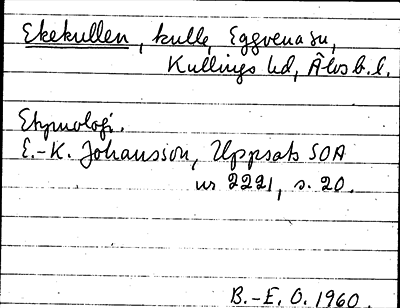 Ekekullen, kulle, Eggvena sn,
Kullings hd, Älvsb. l.
Etymologi.
E.-K. Johansson, Uppsats SOA
nr 2221, s. 20.
B.-E. O. 1960.